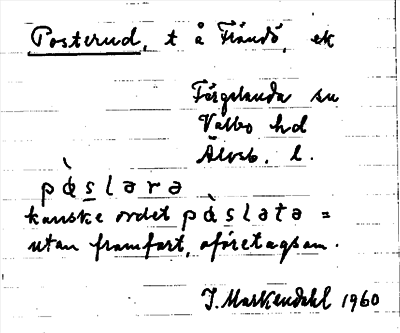 Posterud, t å Håndö, ek
Färgelanda sn
Valbo hd
Älvsb. l.
pàslərə
kanske ordet pàslətə =
utan framfart, oföretagsam.
J. Markendahl 1960